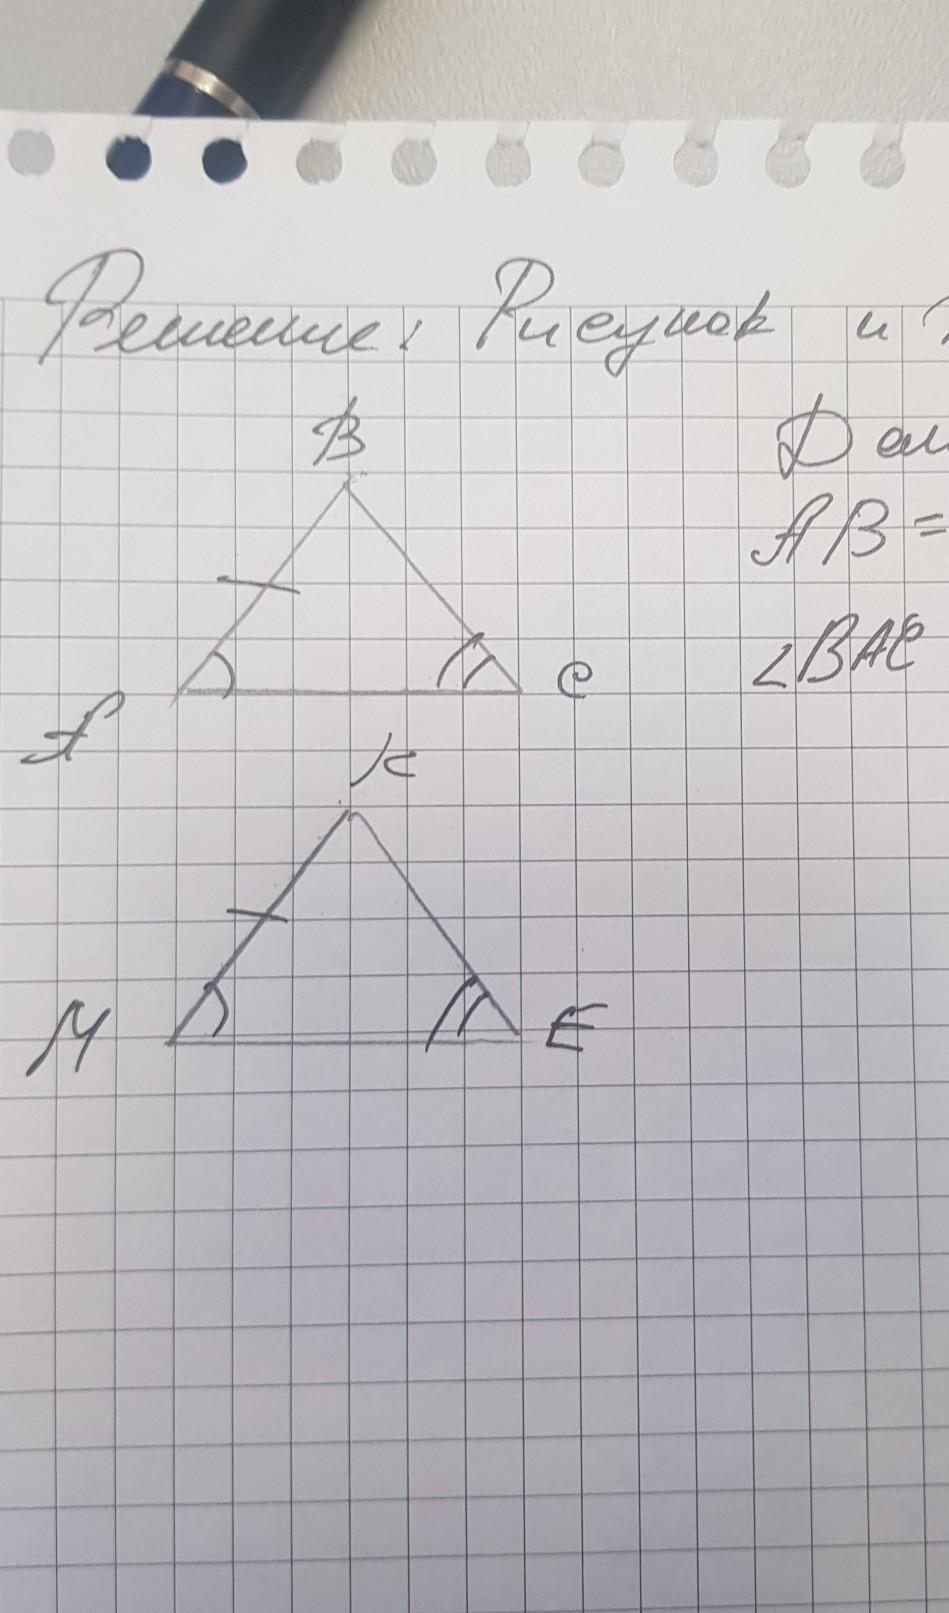 Решение: Рисунок и
B
Дан
AB =
∠BAC
A
C
K
M
E